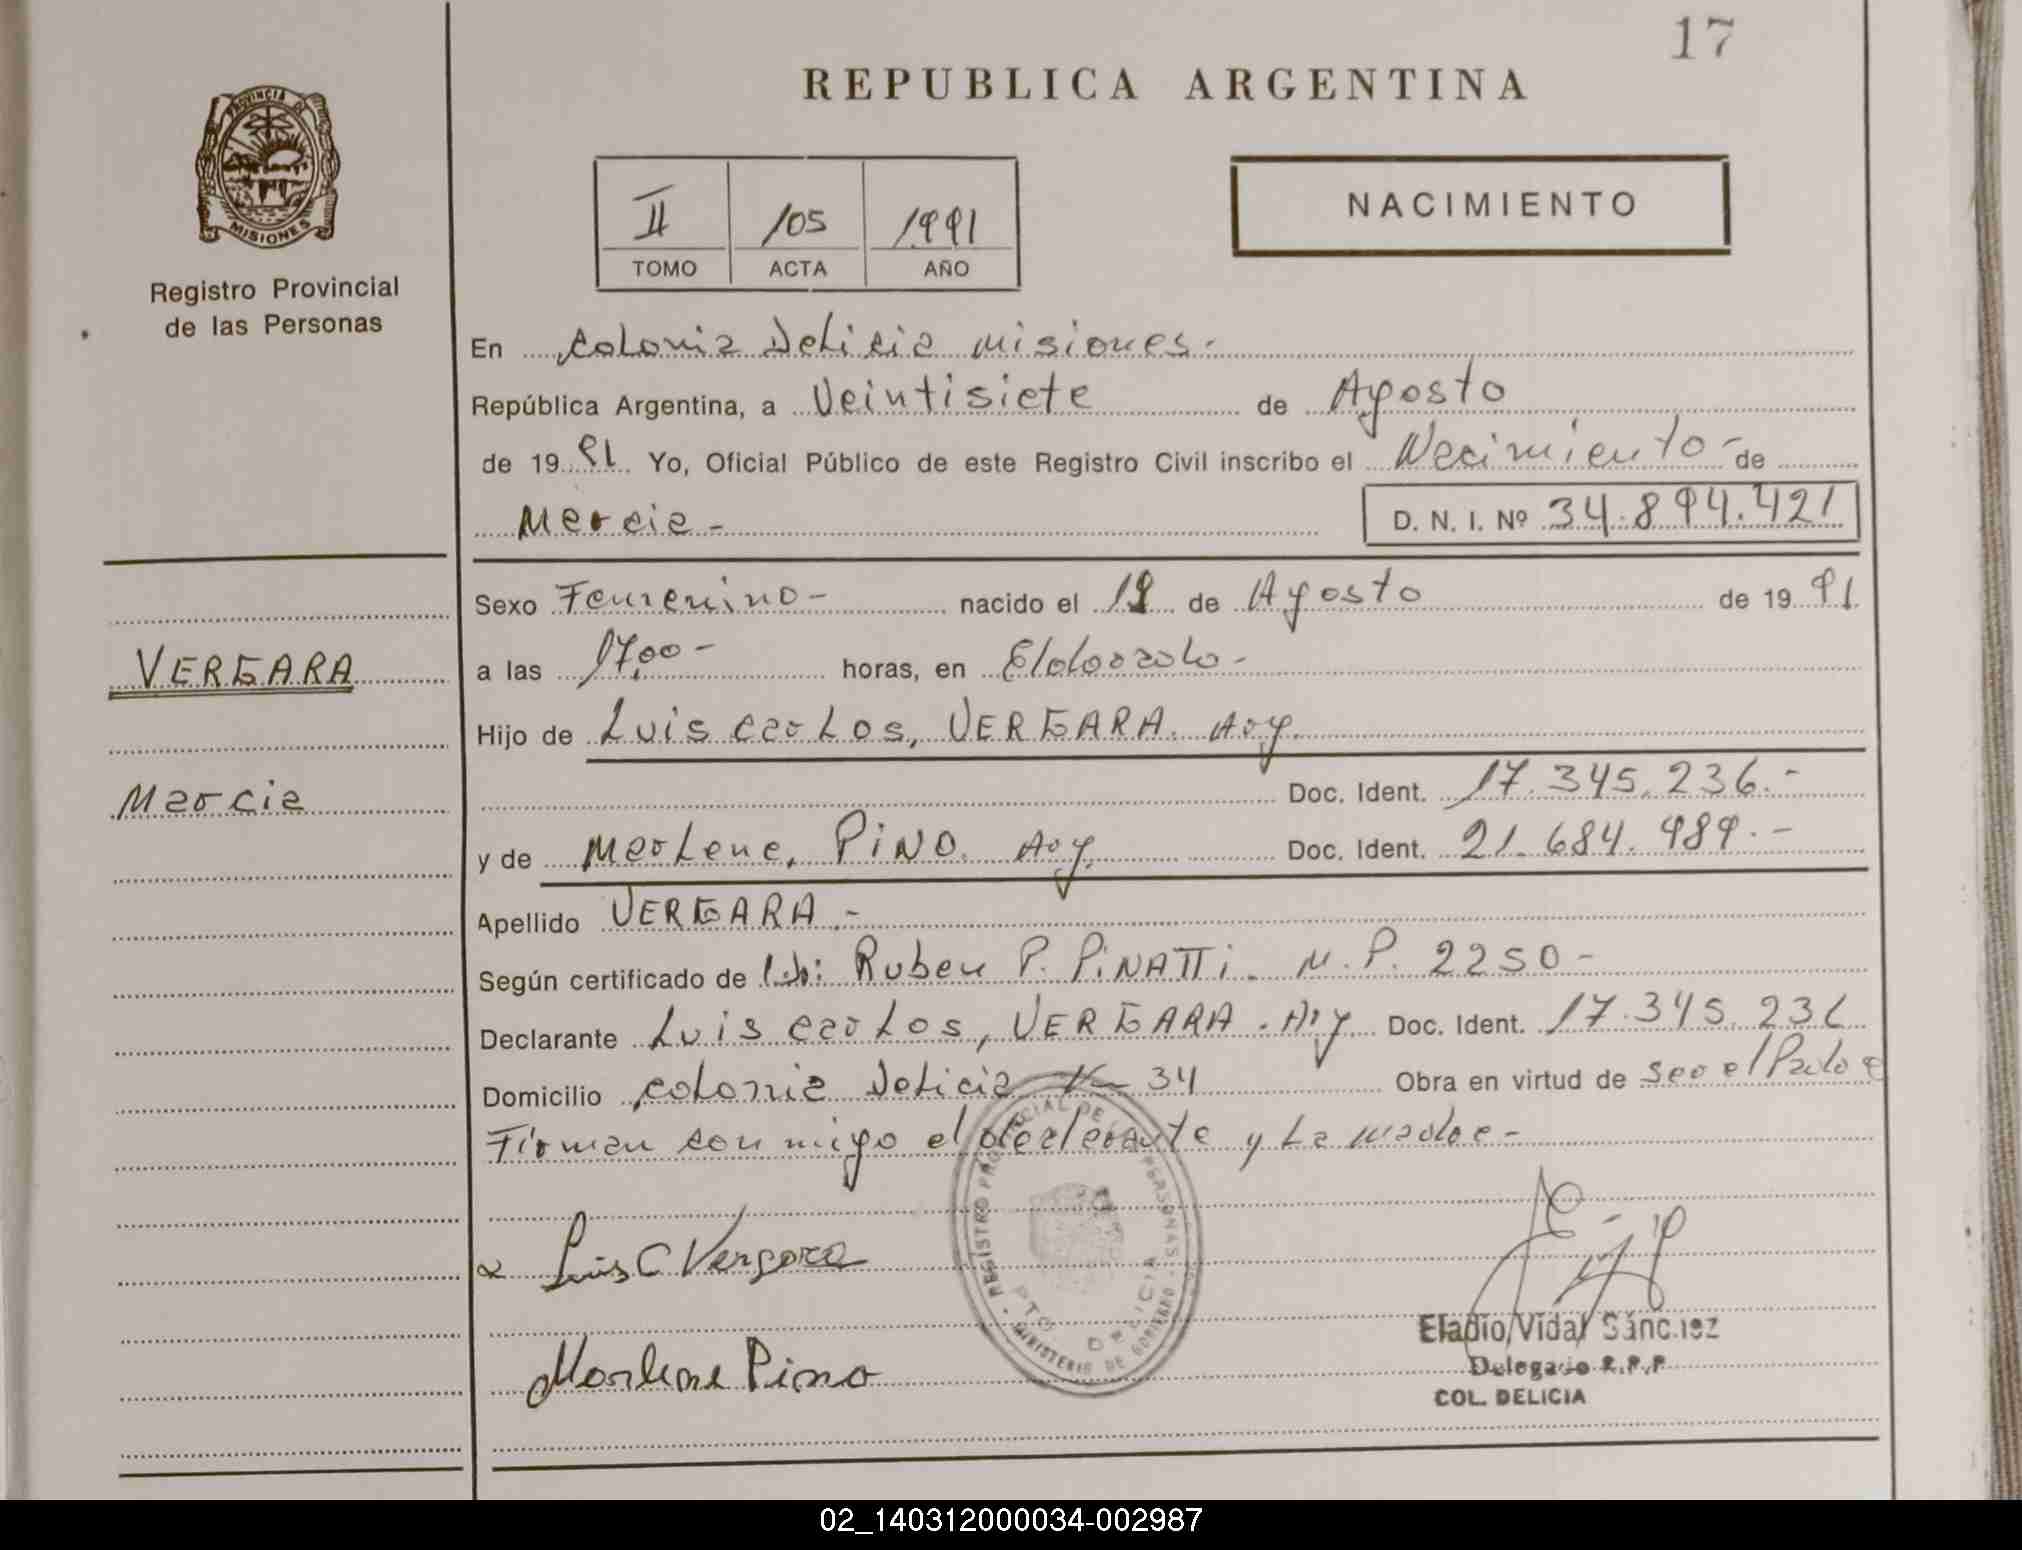 17
REPUBLICA ARGENTINA
PROVINCIA DE
MISIONES
Registro Provincial
de las Personas
II 105 1991
TOMO ACTA AÑO
NACIMIENTO
En Colonia Delicia Misiones.
República Argentina, a Veintisiete de Agosto
de 1991 Yo, Oficial Público de este Registro Civil inscribo el Nacimiento - de
Marcia - D. N. I. Nº 34.894.421
Sexo Femenino - nacido el de Agosto de 1991
VERGARA
a las 17,00 - horas, en Eldorado -
Hijo de Luis Carlos, VERGARA. Arg.
Marcia
Doc. Ident. 17.345.236.-
y de Marlene, PINO. Arg. Doc. Ident. 21.684.989.-
Apellido VERGARA.-
Según certificado de Ruben P. PiNATTi. M.P. 2250-
Declarante Luis Carlos, VERGARA. Arg Doc. Ident. 17.345.236
Domicilio Colonia Delicia K- 34 Obra en virtud de Ser el Padre
Firman con migo el declarante y La madre -
REGISTRO PROVINCIAL DE LAS PERSONAS
PTO DELICIA
MINISTERIO DE GOBIERNO
Luis C Vergara
Marlene Pino
Eladio Vidal Sánchez
Delegado R.P.P
COL. DELICIA
02_140312000034-002987